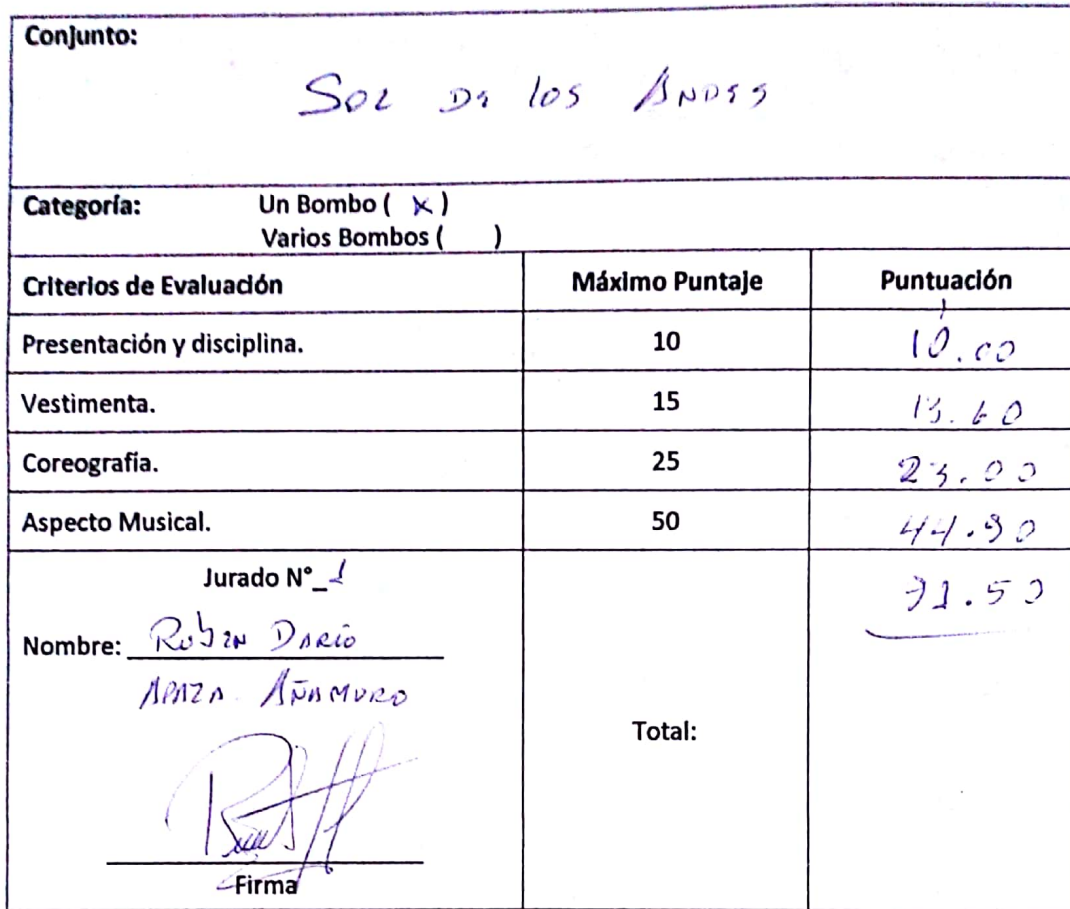 Conjunto:
Sol De los Andes
Categoría: Un Bombo ( x )
Varios Bombos ( )
Criterios de Evaluación Máximo Puntaje Puntuación
Presentación y disciplina. 10 10.00
Vestimenta. 15 13.60
Coreografía. 25 23.00
Aspecto Musical. 50 44.90
Jurado N°_1
Nombre: Rubén Darío
Apaza Añamuro
Total: 91.50
Firma